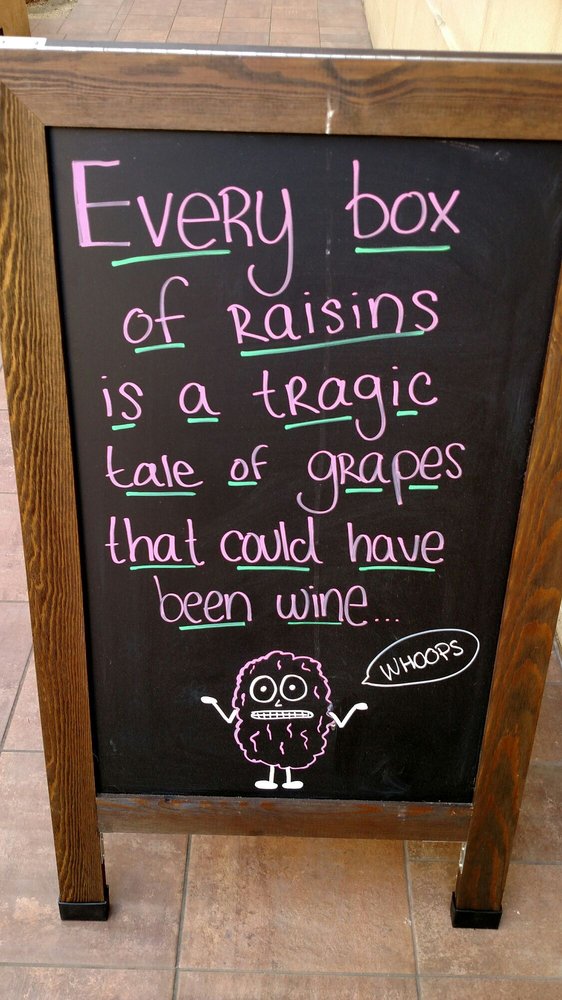 Every box
of Raisins
is a tragic
tale of grapes
that could have
been wine...
WHOOPS